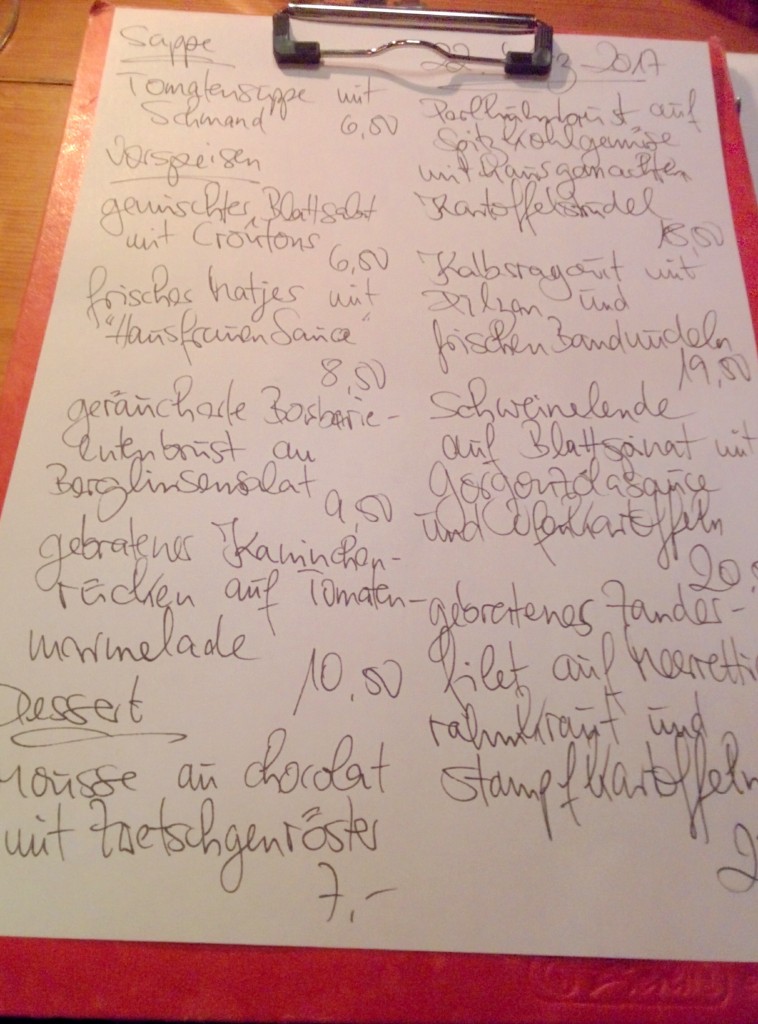 Suppe
Tomatensuppe mit
Schmand 6,50
Vorspeisen
gemischter Blattsalat
mit Croûtons
6,50
frischer Matjes mit
"Hausfrauen Sauce"
8,50
geräucherte Barbarie-
entenbrust an
Berglinsensalat
9,50
gebratener Kaninchen-
rücken auf Tomaten-
marmelade
10,50
Dessert
mousse au chocolat
mit Zwetschgenröster
7,-
22. 2017
auf
Spitzkohlgemüse
mit hausgemachten
Kartoffelstrudel
18,50
Kalbsragout mit
Pilzen und
frischen Bandnudeln
19,50
Schweinelende
auf Blattspinat mit
Gorgonzolasauce
und Ofenkartoffeln
20,
gebratenes Zander-
filet auf Meerretti
rahmkraut und
Stampfkartoffeln
2